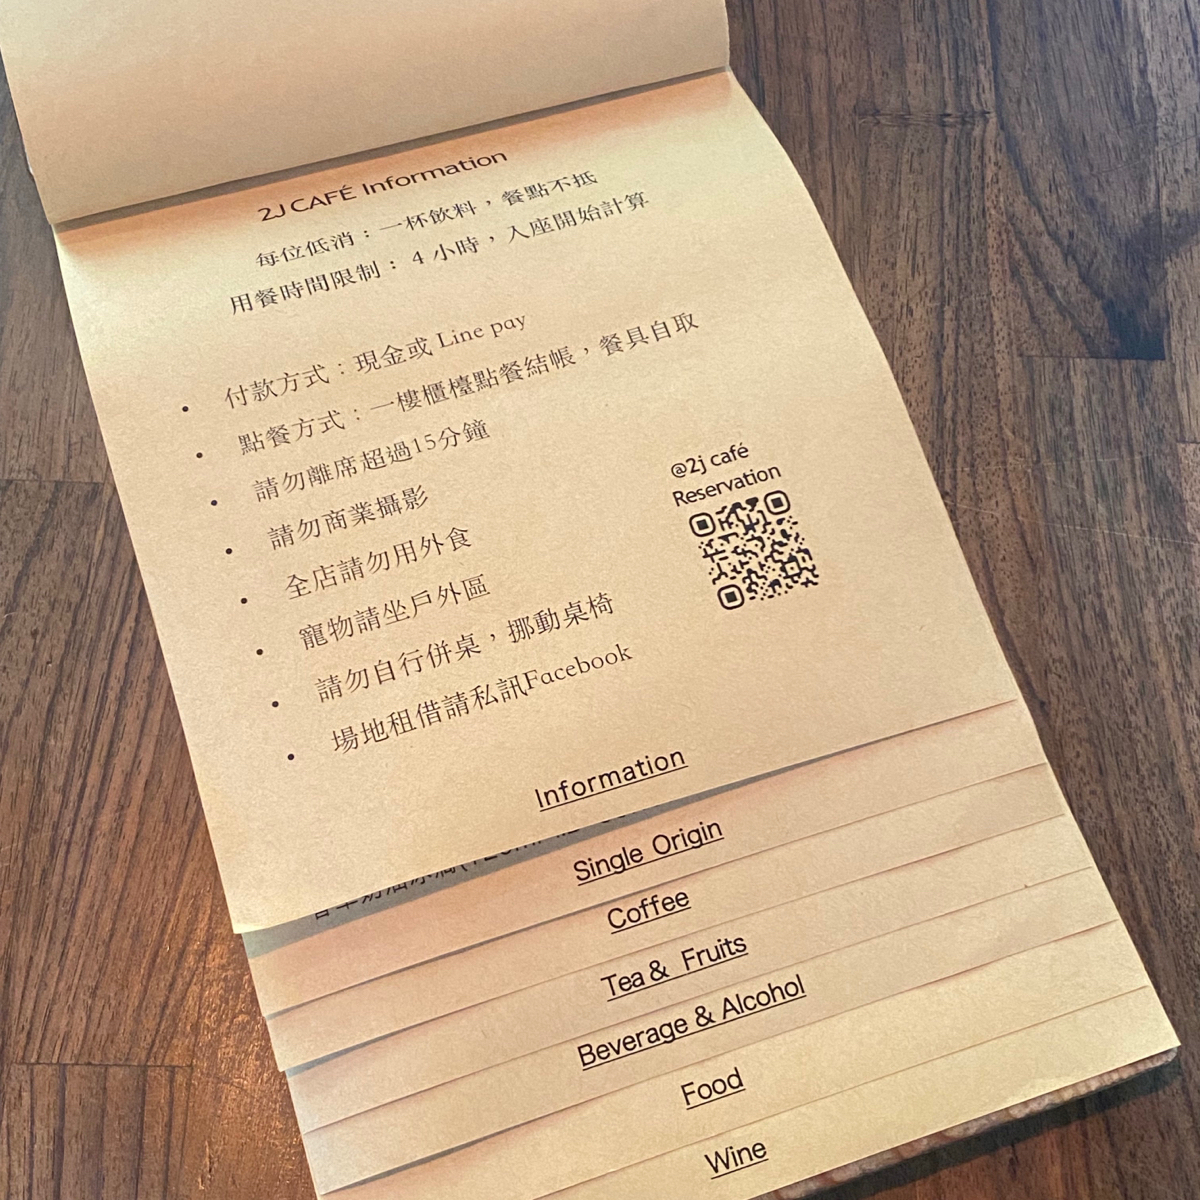 2J CAFÉ Information
每位低消：一杯飲料，餐點不抵
用餐時間限制： 4 小時，入座開始計算
• 付款方式：現金或 Line pay
• 點餐方式：一樓櫃檯點餐結帳，餐具自取
• 請勿離席超過15分鐘
• 請勿商業攝影
• 全店請勿用外食
• 寵物請坐戶外區
• 請勿自行併桌，挪動桌椅
• 場地租借請私訊Facebook
@2j café
Reservation
Information
Single Origin
Coffee
Tea & Fruits
Beverage & Alcohol
Food
Wine